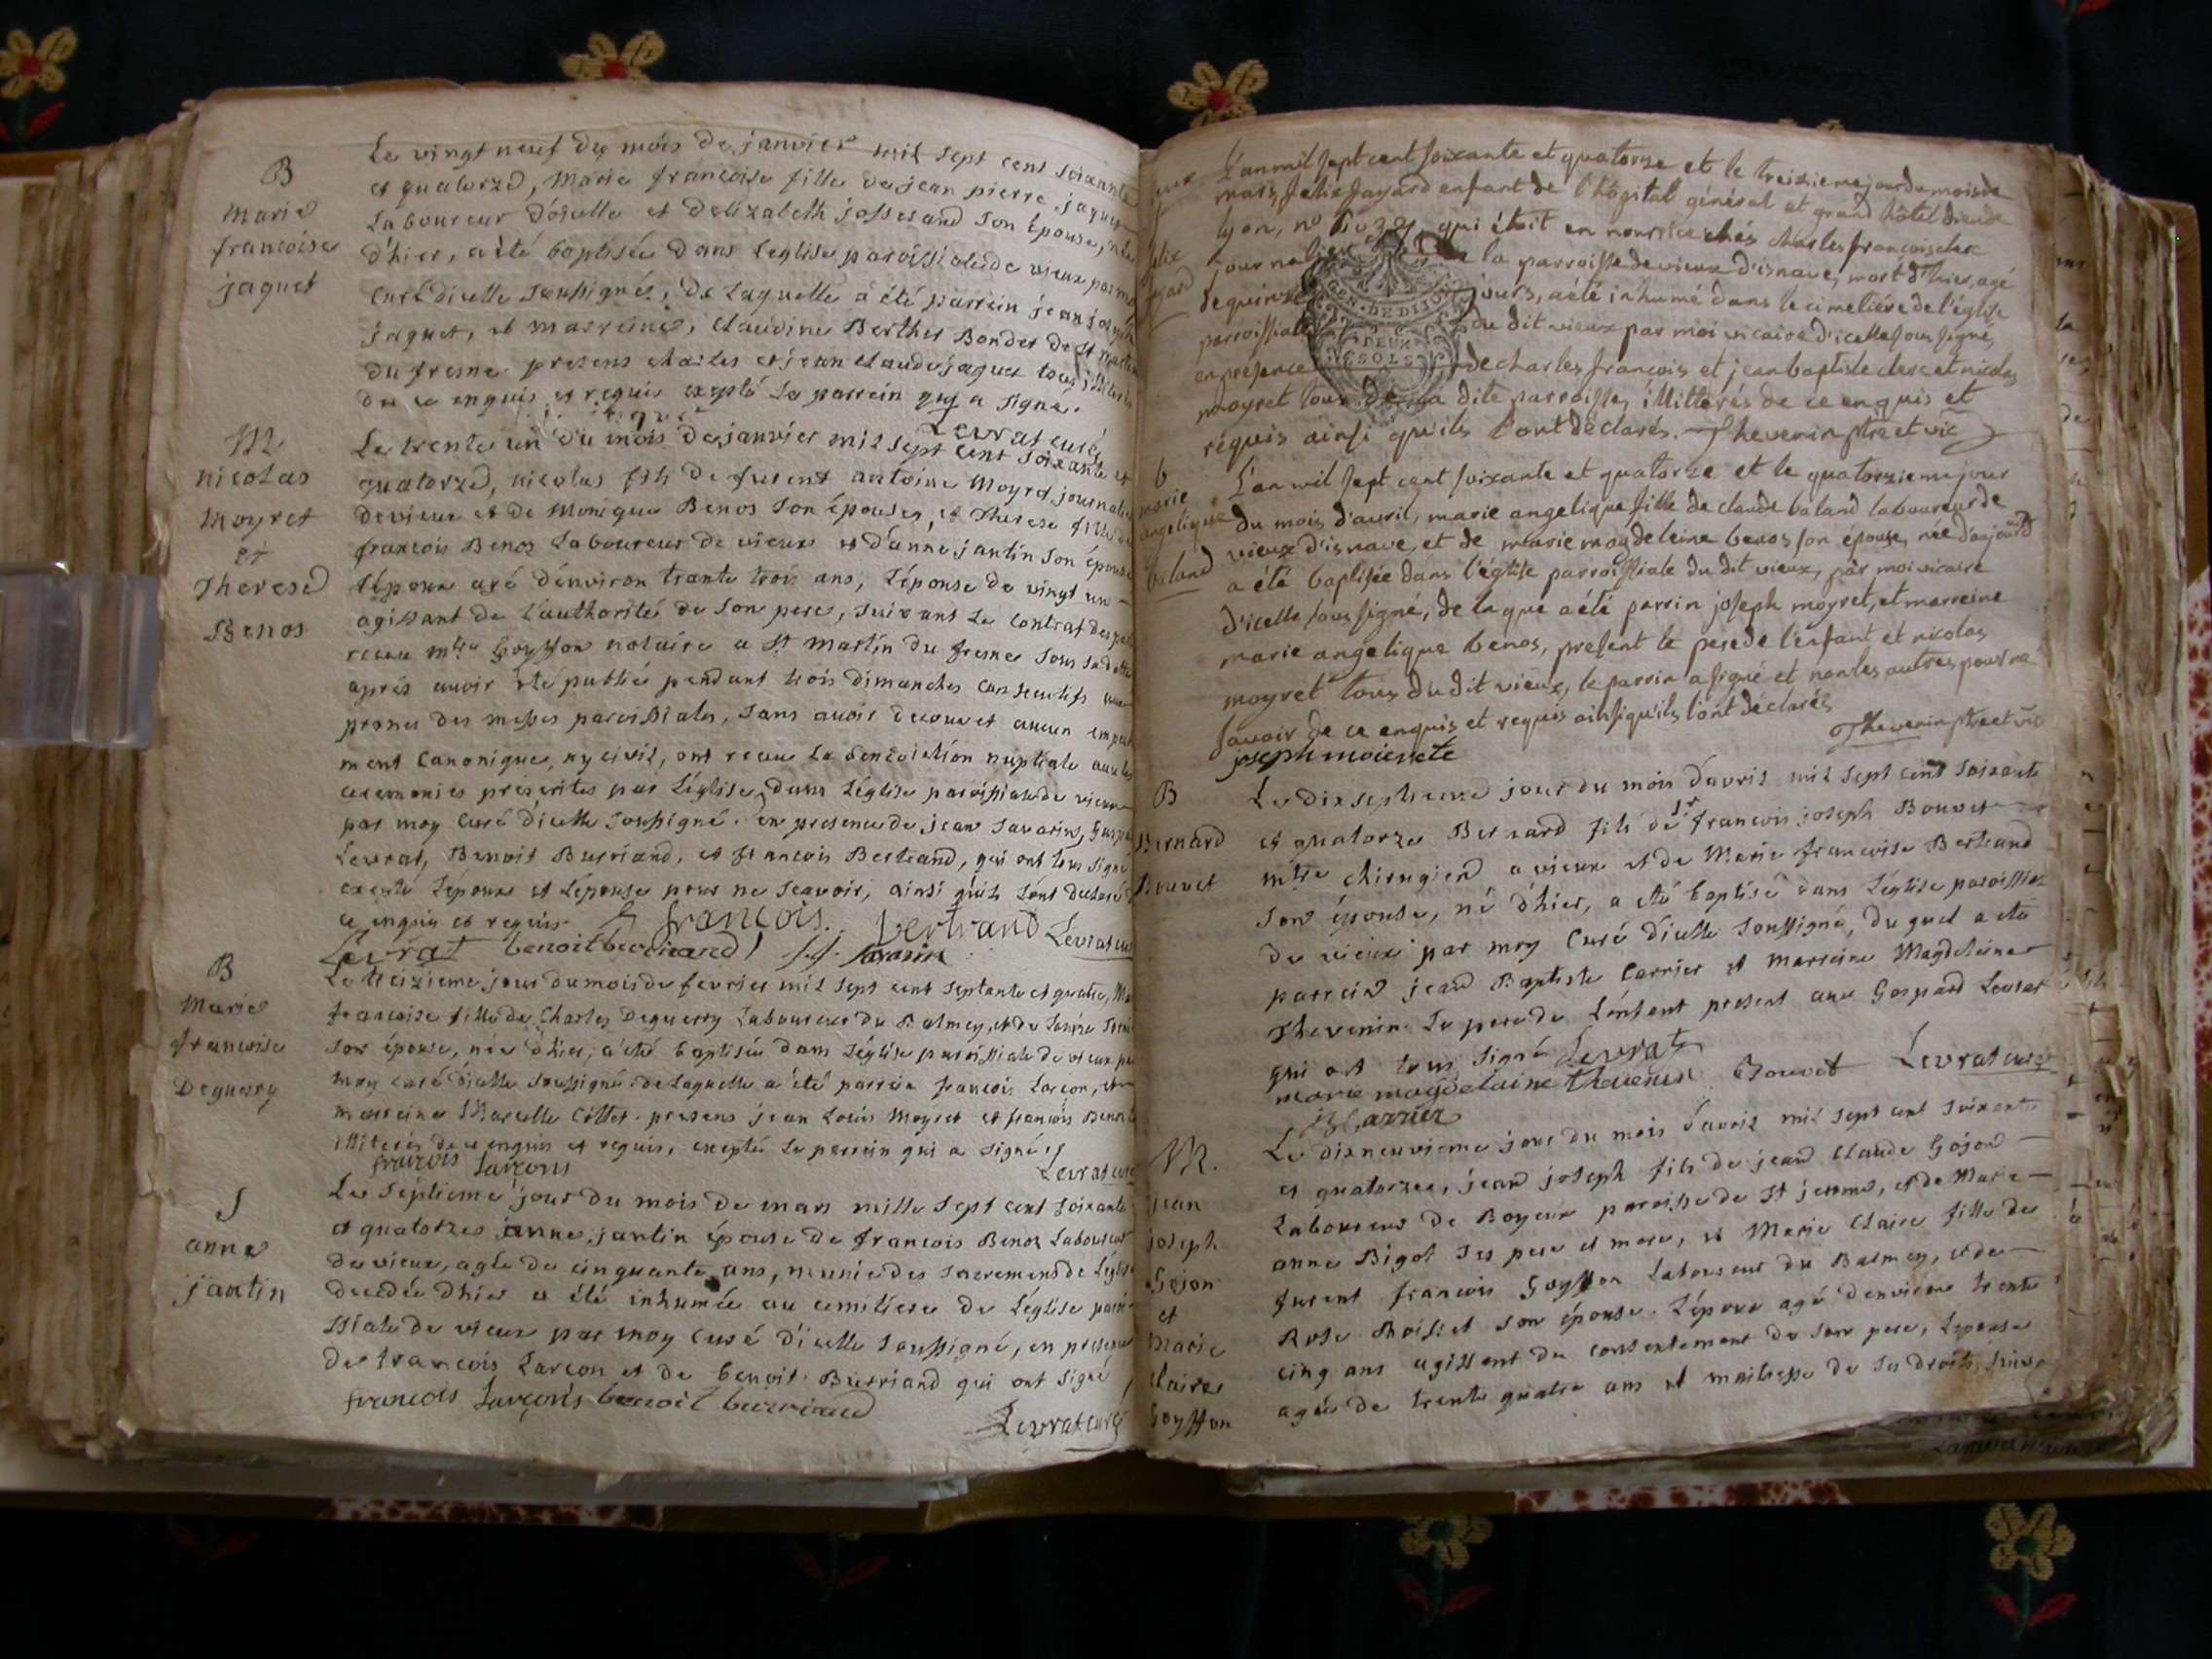 B
Marie
francoise
jaquet
Le vingt neuf du mois de janvier mil sept cent soixante
et quatorze, Marie francoise fille de jean pierre jaquet
Laboureur d'ojselle et d'elizabeth josserand son Epouse, née
d'hier, a été baptisée dans Leglise paroissiale de vieux par moy
Curé d'icelle soussigné, de Laquelle a été parrein jean joseph
jaquet, et marreine, Claudine Berthet Bondet de St martin
du fresne presens charles et jean claude jaquet tous illiterés
de ce enquis et requis excepté Le parrein qui a signé.
Levrat curé
M
nicolas
Moyret
et
Therese
Benos
Le trente un du mois de janvier mil sept cent soixante et
quatorze, nicolas fils de furent antoine Moyret journalier
de vieux et de Monique Benos son épouse, et Therese fille de
francois Benos Laboureur de vieux et d'anne jantin son épouse
L'époux agé d'environ trante trois ans, L'épouse de vingt un
agissant de L'authorité de son pere, suivant Le contrat
receu mtre Goyffon notaire a St Martin du fresne sous sa datte
aprés avoir été publié pendant trois dimanches consecutifs aux
prones des messes paroissiales, sans avoir decouvert aucun empeche
ment Canonique, ny civil, ont receu La benediction nuptiale avec les
ceremonies préscrites par L'église, dans L'église paroissiale de vieux
par moy Curé d'icelle soussigné. en presence de jean Savarin, Gaspard
Levrat, Benoit Burriand, et francois Bertrand, qui ont tous signé
excepté L'époux et L'épouse pour ne sçavoir, ainsi qu'ils L'ont declaré de
ce enquis et requis. françois. bertrand Levrat curé
Levrat benoit burriand j.f. savarin
B
Marie
francoise
Deguerry
Le treizieme jour du mois de fevrier mil sept cent septante et quatre, Marie
francoise fille de Charles Deguerry Laboureur du Balmey, et de
son épouse, née d'hier, a été baptisée dans L'église paroissiale de vieux par
moy curé d'icelle soussigné. de Laquelle a été parrein francois Larçon, et
marreine Marcelle Collet. presens jean Louis Moyret et francois Benos
illiterés de ce enquis et requis, excepté Le parrein qui a signé
françois Larçons
Levrat curé
S
anne
jantin
Le séptieme jour du mois de mars mille sept cent soixante
et quatorze anne jantin épouse de francois Benos Laboureur
de vieux, agée de cinquante ans, munie des sacremens de L'église
decedée d'hier a été inhumée au cemitiere de L'église parois
siale de vieux par moy Curé d'icelle soussigné, en presence
de francois Larçon et de benoit Burriand qui ont signé
françois Larçons benoit burriand
Levrat curé
L'an mil sept cent soixante et quatorze et le treizieme jour du mois de
mars felix fayard enfant de l'hôpital général et grand hôtel dieu de
lyon, no qui étoit en nourrice chés charles francois clerc
journalier de la parroisse de vieux d'isnave, mort d'hier, agé
de quinze jours, a été inhumé dans le cimetiére de l'église
parroissiale du dit vieux par moi vicaire d'icelle sous signé,
en presence de charles francois et jean baptiste clerc et nicolas
moyret tous de la dite parroisse, illitterés de ce enquis et
réquis ainsi qu'ils l'ont déclarés. Thevenin ptre et vic
GEN. DE DIJON
DEUX
SOLS
b
marie
angelique
baland
L'an mil sept cent soixante et quatorze et le quatorzieme jour
du mois d'avril, marie angelique fille de claude baland laboureur de
vieux d'isnave, et de marie magdeleine benos son épouse, née d'aujourd'hui
a été baptisée dans l'église parroissiale du dit vieux, par moi vicaire
d'icelle sous signé, de laque a été parrin joseph moyret, et marreine
marie angelique benos, present le pere de l'enfant et nicolas
moyret tous du dit vieux, le parrin a signé et non les autres pour ne
savoir de ce enquis et requis ainsi qu'ils l'ont déclarés
Thevenin ptre et vic
joseph moierete
B
Bernard
Bouvet
Le dix septieme jour du mois d'avril mil sept cent soixante
et quatorze Bernard fils de sr francois joseph Bouvet
mtre chirugien a vieux et de Marie francoise Bertrand
son épouse, né d'hier, a été baptisé dans L'église paroissiale
de vieux par moy Curé d'icelle soussigné, du quel a été
parrein jean Baptiste Carrier et marreine Magdeleine
Thevenin. Le pere de L'enfant present avec Gaspard Levrat
qui ont tous signé Levrat
marie magdelaine thevenin Bouvet Levrat curé
JB Carrier
M.
jean
joseph
Gojon
et
Marie
Claire
Goyffon
Le dixneuvieme jour du mois d'avril mil sept cent soixante
et quatorze, jean joseph fils de jean Claude Gojon
Laboureur de Boyeux paroisse de St jerome, et de Marie
anne Bigot ses pere et mere, et Marie Claire fille de
furent francois Goyffon Laboureur du Balmey, et de
Rose Roisset son épouse. L'époux agé d'environ trente
cinq ans agissant du consentement de son pere, L'epouse
agée de trente quatre ans et maitresse de ses droits, suivant